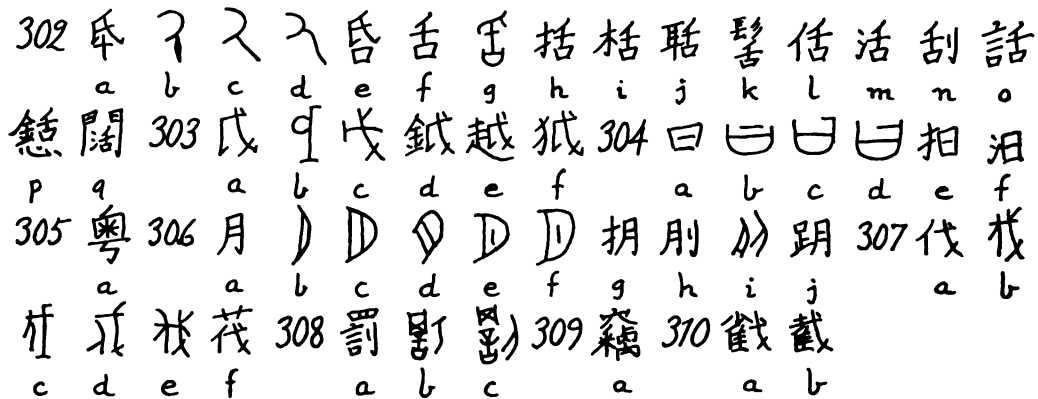 302 氒 舌 括 栝 聒 髺 佸 活 刮 話
a b c d e f g h i j k l m n o
懖 闊 303 戉 鉞 越 狘 304 曰 抇 汩
p q a b c d e f a b c d e f
305 粵 306 月 抈 刖 跀 307 伐
a a b c d e f g h i j a b
茷 308 罰 309 竊 310 𢧵 截
c d e f a b c a a b